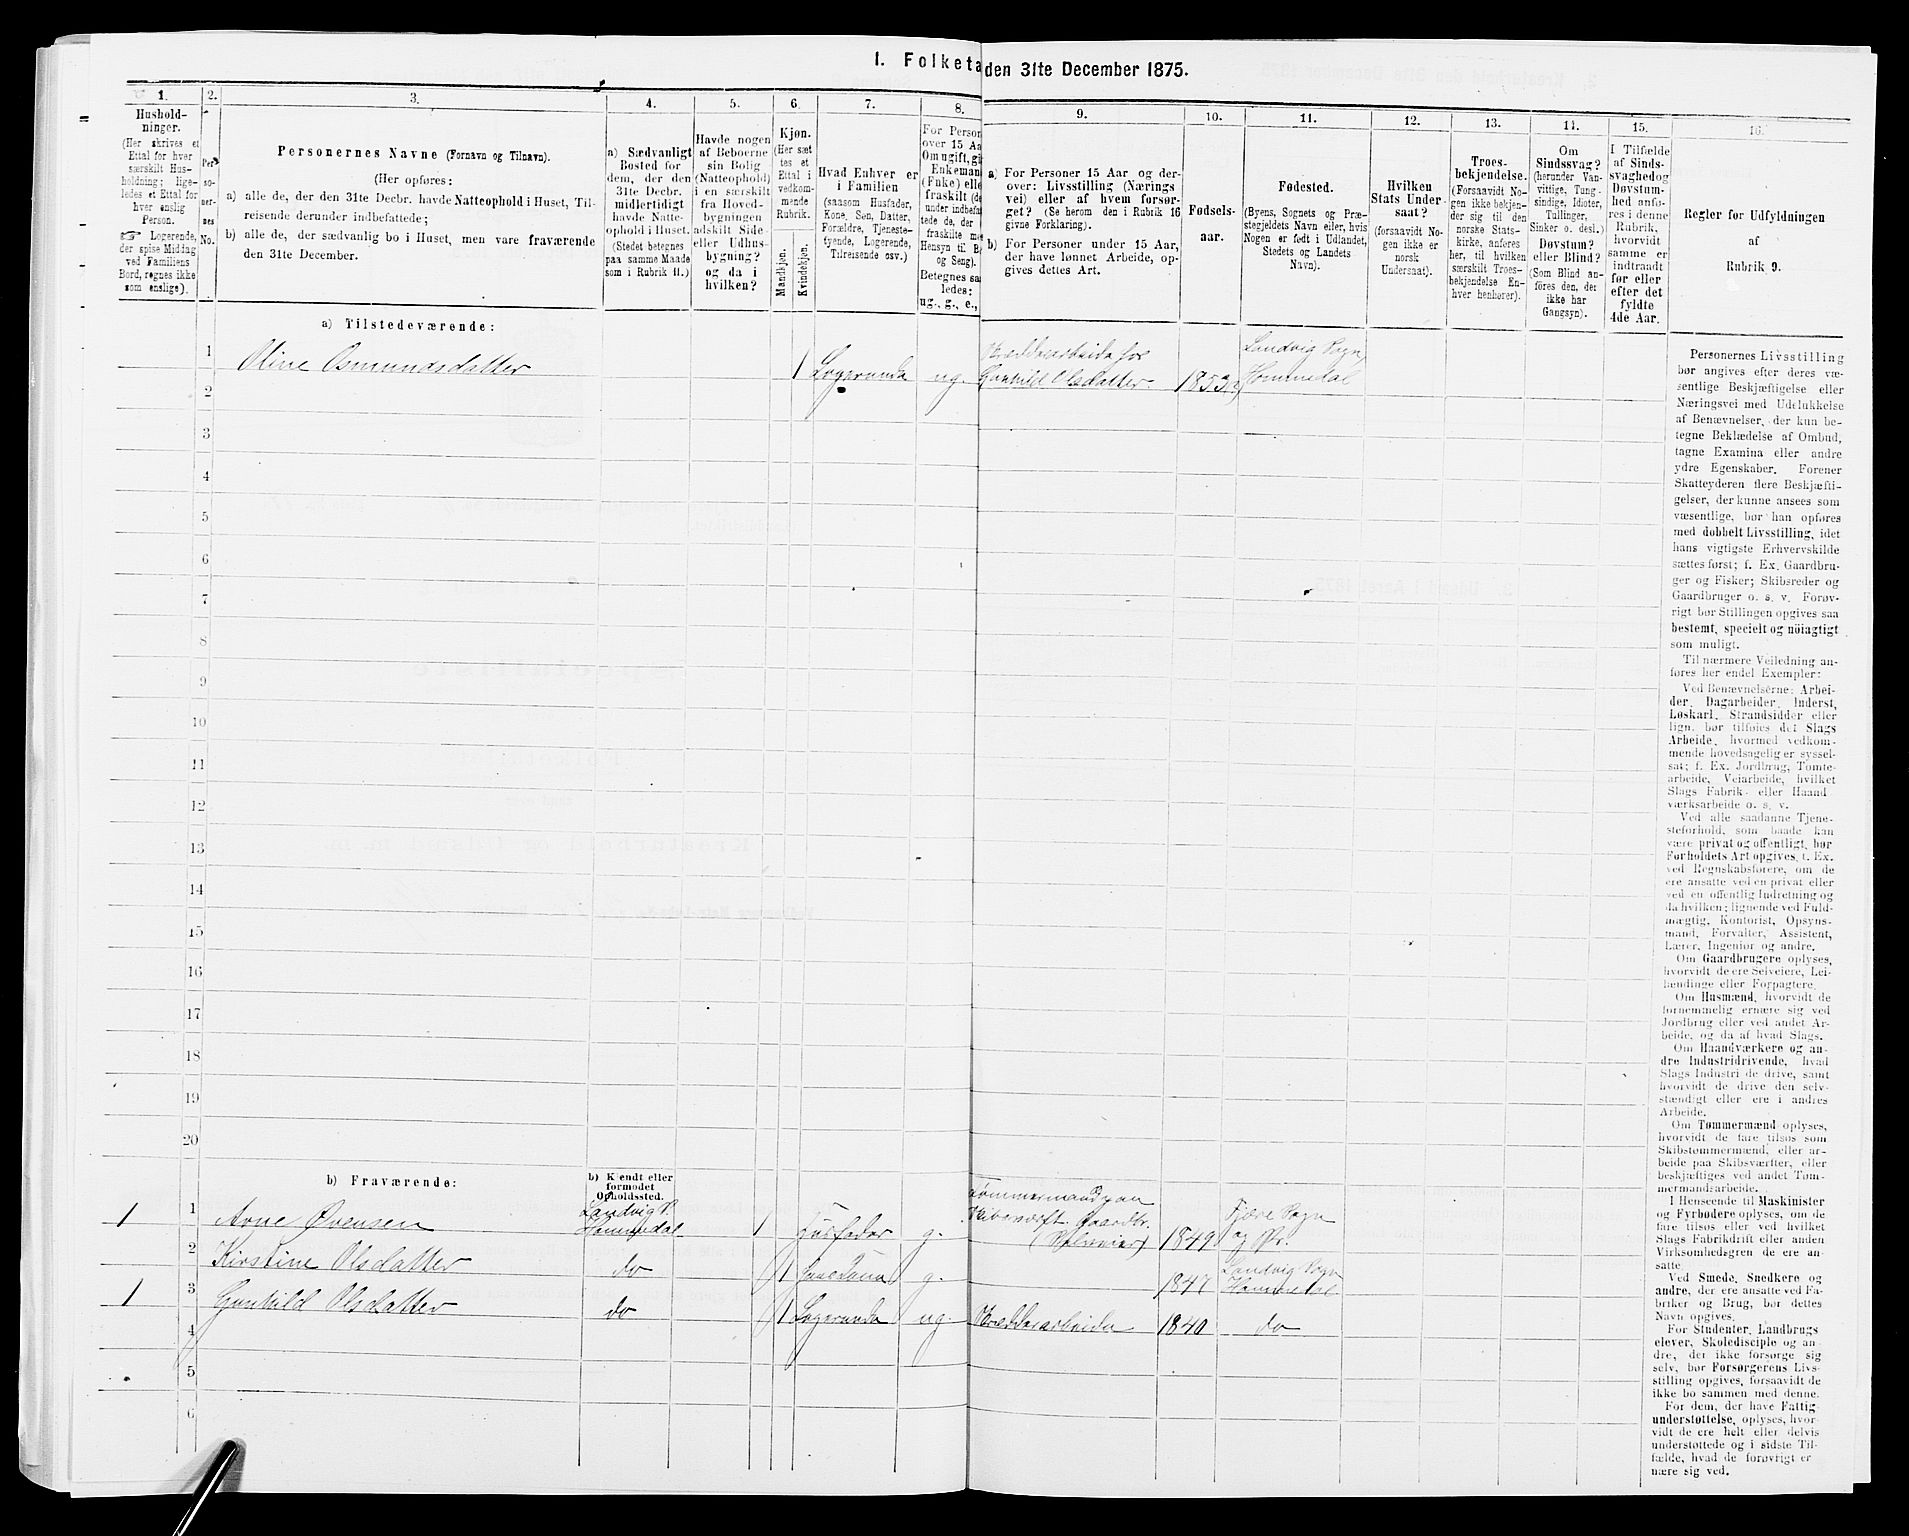 1. Folketa
den 31te December 1875.
1. 2. 3. 4. 5. 6. 7. 8. 9. 10. 11. 12. 13. 14. 15. 16.
Hushold-
ninger.
(Her skrives et
Ettal for hver
særskilt Hus-
holdning; lige-
ledes et Ettal for
hver enslig
Person.
☞ Logerende,
der spise Middag
ved Familiens
Bord, regnes ikke
som enslige).
Per-
so-
ner-
nes
No.
Personernes Navne (Fornavn og Tilnavn).
(Her opføres:
a) alle de, der den 31te Decbr. havde Natteophold i Huset, Til-
reisende derunder indbefattede;
b) alle de, der sædvanlig bo i Huset, men vare fraværende
den 31te December.
a) Sædvanligt
Bosted for
dem, der den
31te Decbr.
midlertidigt
havde Natte-
ophold i Huset.
(Stedet betegnes
paa samme Maade
som i Rubrik 11.)
Havde nogen
af Beboerne
sin Bolig
(Natteophold)
i en særskilt
fra Hoved-
bygningen
adskilt Side-
eller Udhus-
bygning?
og da i
hvilken?
Kjøn.
(Her sæt-
tes et
Ettal i
vedkom-
mende
Rubrik.
Mandkjøn.
Kvindekjøn.
Hvad Enhver er
i Familien
(saasom Husfader,
Kone, Søn, Datter,
Forældre, Tjeneste-
tyende, Logerende,
Tilreisende osv.)
For Person
over 15 Aa
Om ugift, gi
Enkeman
(Enke) elle
fraskilt (de
under indbefat
tede de, der
fraskilte me
Hensyn til B
og Seng).
Betegnes sa
ledes:
ug., g., e.,
a) For Personer 15 Aar og der-
over: Livsstilling (Nærings
vei) eller af hvem forsør-
get? (Se herom den i Rubrik 16
givne Forklaring).
b) For Personer under 15 Aar,
der have lønnet Arbeide, op-
gives dettes Art.
Fødsels-
aar.
Fødested.
(Byens, Sognets og Præ-
stegjeldets Navn eller, hvis
Nogen er født i Udlandet,
Stedets og Landets
Navn).
Hvilken
Stats Under-
saat?
(forsaavidt No-
gen ikke er
norsk
Undersaat).
Troes-
bekjendelse.
(Forsaavidt No-
gen ikke bekjen-
der sig til den
norske Stats-
kirke, anføres
her, til hvilken
særskilt Troes-
bekjendelse En-
hver henhører).
Om
Sindssvag?
(herunder Van-
vittige, Tung-
sindige, Idioter,
Tullinger,
Sinker o. desl.)
Døvstum?
eller Blind?
(Som Blind an-
føres den, der
ikke har
Gangsyn).
I Tilfælde
af Sinds-
svaghed og
Døvstum-
hed anfø-
res i denne
Rubrik,
hvorvidt
samme er
indtraadt
før eller
efter det
fyldte
4de Aar.
Regler for Udfyldningen
af
Rubrik 9.
a) Tilstedeværende:
1 Oline Osmundsdatter 1 Logerende ug. Skrædderarbeide for Gunhild Olsdatter. 1853 Landvig Sogn Hommedal
2
3
4
5
6
7
8
9
10
11
12
13
14
15
16
17
18
19
20
b) Fraværende:
b) Kjendt eller
formodet
Opholdssted.
1 1 Arne Øvensen Landvig P. Hommedal 1 Husfader g. Tømmermand paa Skibsværft. Gaardbr. (Selveier) 1849 Fjære Sogn og Pr.
2 Kirstine Olsdatter do 1 g. 1847 Landvig Sogn Hommedal
1 3 Gunhild Olsdatter do 1 Logerende ug. Skrædderarbeide 1840 do
4
5
6
Personernes Livsstilling
bør angives efter deres væ-
sentlige Beskjæftigelse eller
Næringsvei med Udelukkelse
af Benævnelser, der kun be-
tegne Beklædelse af Ombud,
tagne Examina eller andre
ydre Egenskaber. Forener
Skatteyderen flere Beskjæfti-
gelser, der kunne ansees som
væsentlige, bør han opføres
med dobbelt Livsstilling, idet
hans vigtigste Erhvervskilde
sættes først; f. Ex. Gaardbru-
ger og Fisker; Skibsreder og
Gaardbruger o. s. v. Forøv-
rigt bør Stillingen opgives saa
bestemt, specielt og nöiagtigt
som muligt.
Til nærmere Veiledning an-
føres her endel Exempler:
Ved Benævnelserne: Arbei-
der, Dagarbeider, Inderst,
Løskarl, Strandsidder eller
lign. bør tilføies det Slags
Arbeide, hvormed vedkom-
mende hovedsagelig er syssel-
sat; f. Ex. Jordbrug, Tomte-
arbeide, Veiarbeide, hvilket
Slags Fabrik- eller Haand
værksarbeide o. s. v.
Ved alle saadanne Tjene-
steforhold, som baade kan
være privat og offentligt, bør
Forholdets Art opgives, f. Ex.
ved Regnskabsførere, om de
ere ansatte ved en privat eller
ved en offentlig Indretning og
da hvilken; lignende ved Fuld-
mægtig, Kontorist, Opsyns-
mand, Forvalter, Assistent,
Lærer, Ingeniør og andre.
Om Gaardbrugere oplyses,
hvorvidt de ere Selveiere, Lei-
lændinge eller Forpagtere.
Om Husmænd, hvorvidt de
fornemmelig ernære sig ved
Jordbrug eller ved andet Ar-
beide, og da af hvad Slags.
Om Haandværkere og an-
dre Industridrivende, hvad
Slags Industri de drive, samt
hvorvidt de drive den selv-
stændigt eller ere i andres
Arbeide.
Om Tømmermænd oplyses,
hvorvidt de fare tilsøs som
Skibstømmermænd, eller ar-
beide paa Skibsværfter, eller
beskjæftiges ved andet Tøm-
mermandsarbeide.
I Henseende til Maskinister
og Fyrbødere oplyses, om de
fare tilsøs eller ved hvilket
Slags Fabrikdrift eller anden
Virksomhedsgren de ere an-
satte.
Ved Smede, Snedkere og
andre, der ere ansatte ved Fa-
briker og Brug, bør dettes
Navn opgives.
For Studenter, Landbrugs
elever, Skoledisciple og an-
dre, der ikke forsørge sig
selv, bør Forsørgerens Livs-
stilling opgives, forsaavidt de
ikke bo sammen med denne.
For dem, der have Fattig-
understøttelse, oplyses, hvor-
vidt de ere helt eller delvis
understøttede og i sidste Til-
fælde, hvad de forøvrigt er
nære sig ved.